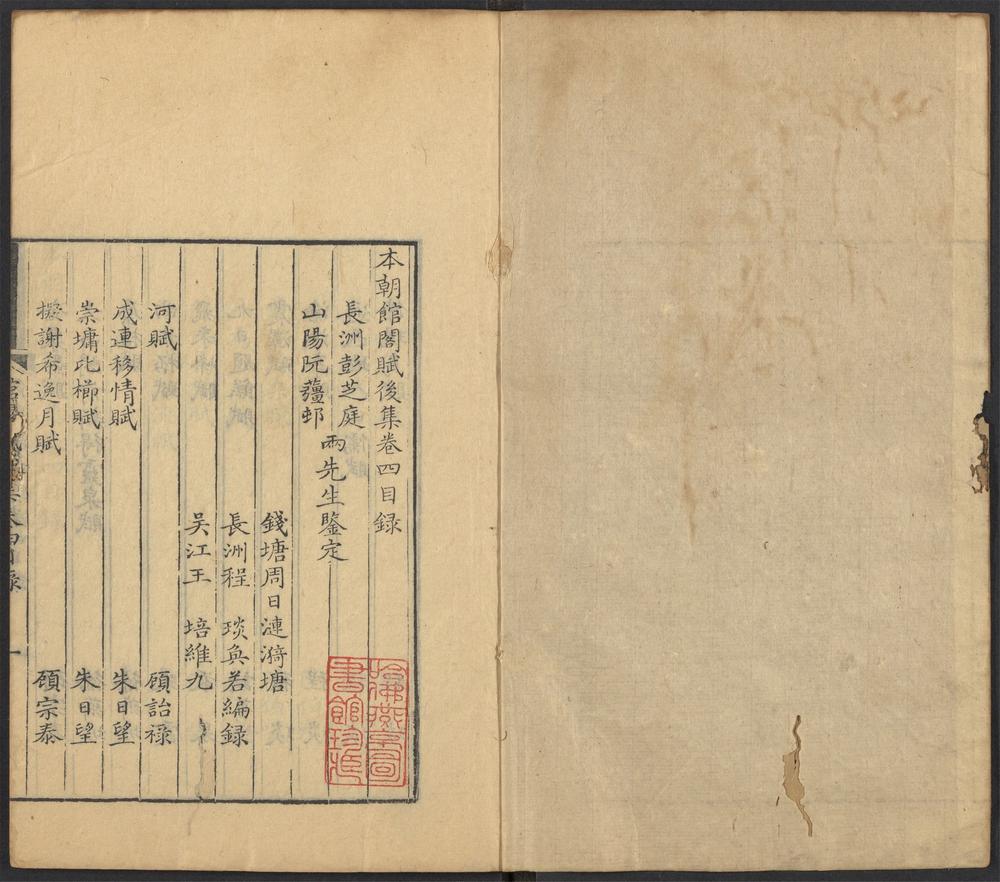 本朝館閣賦後集卷四目録
長洲彭芝庭
山陽阮薑邨
兩先生鑒定
錢塘周日漣漪塘
長洲程　琰奐若編録
吴江王　培維九
河賦　顧詒禄
成連移情賦　朱日望
崇墉比櫛賦　朱日望
擬謝希逸月賦　顧宗泰
哈佛燕京圖書館珍藏